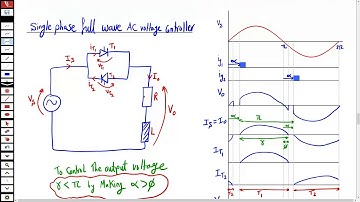 Single phase full wave AC voltage controller
iT1 T1
Is
VT1
Io
iT2
VT2
T2
R
Vs
Vo
L
To Control the output voltage
γ < π by Making α > φ
Vs
π
ig1
α
ig2
α
Vo
Is = Io
α
π
α
γ
φ
IT1
IT2
T2
T1
T2